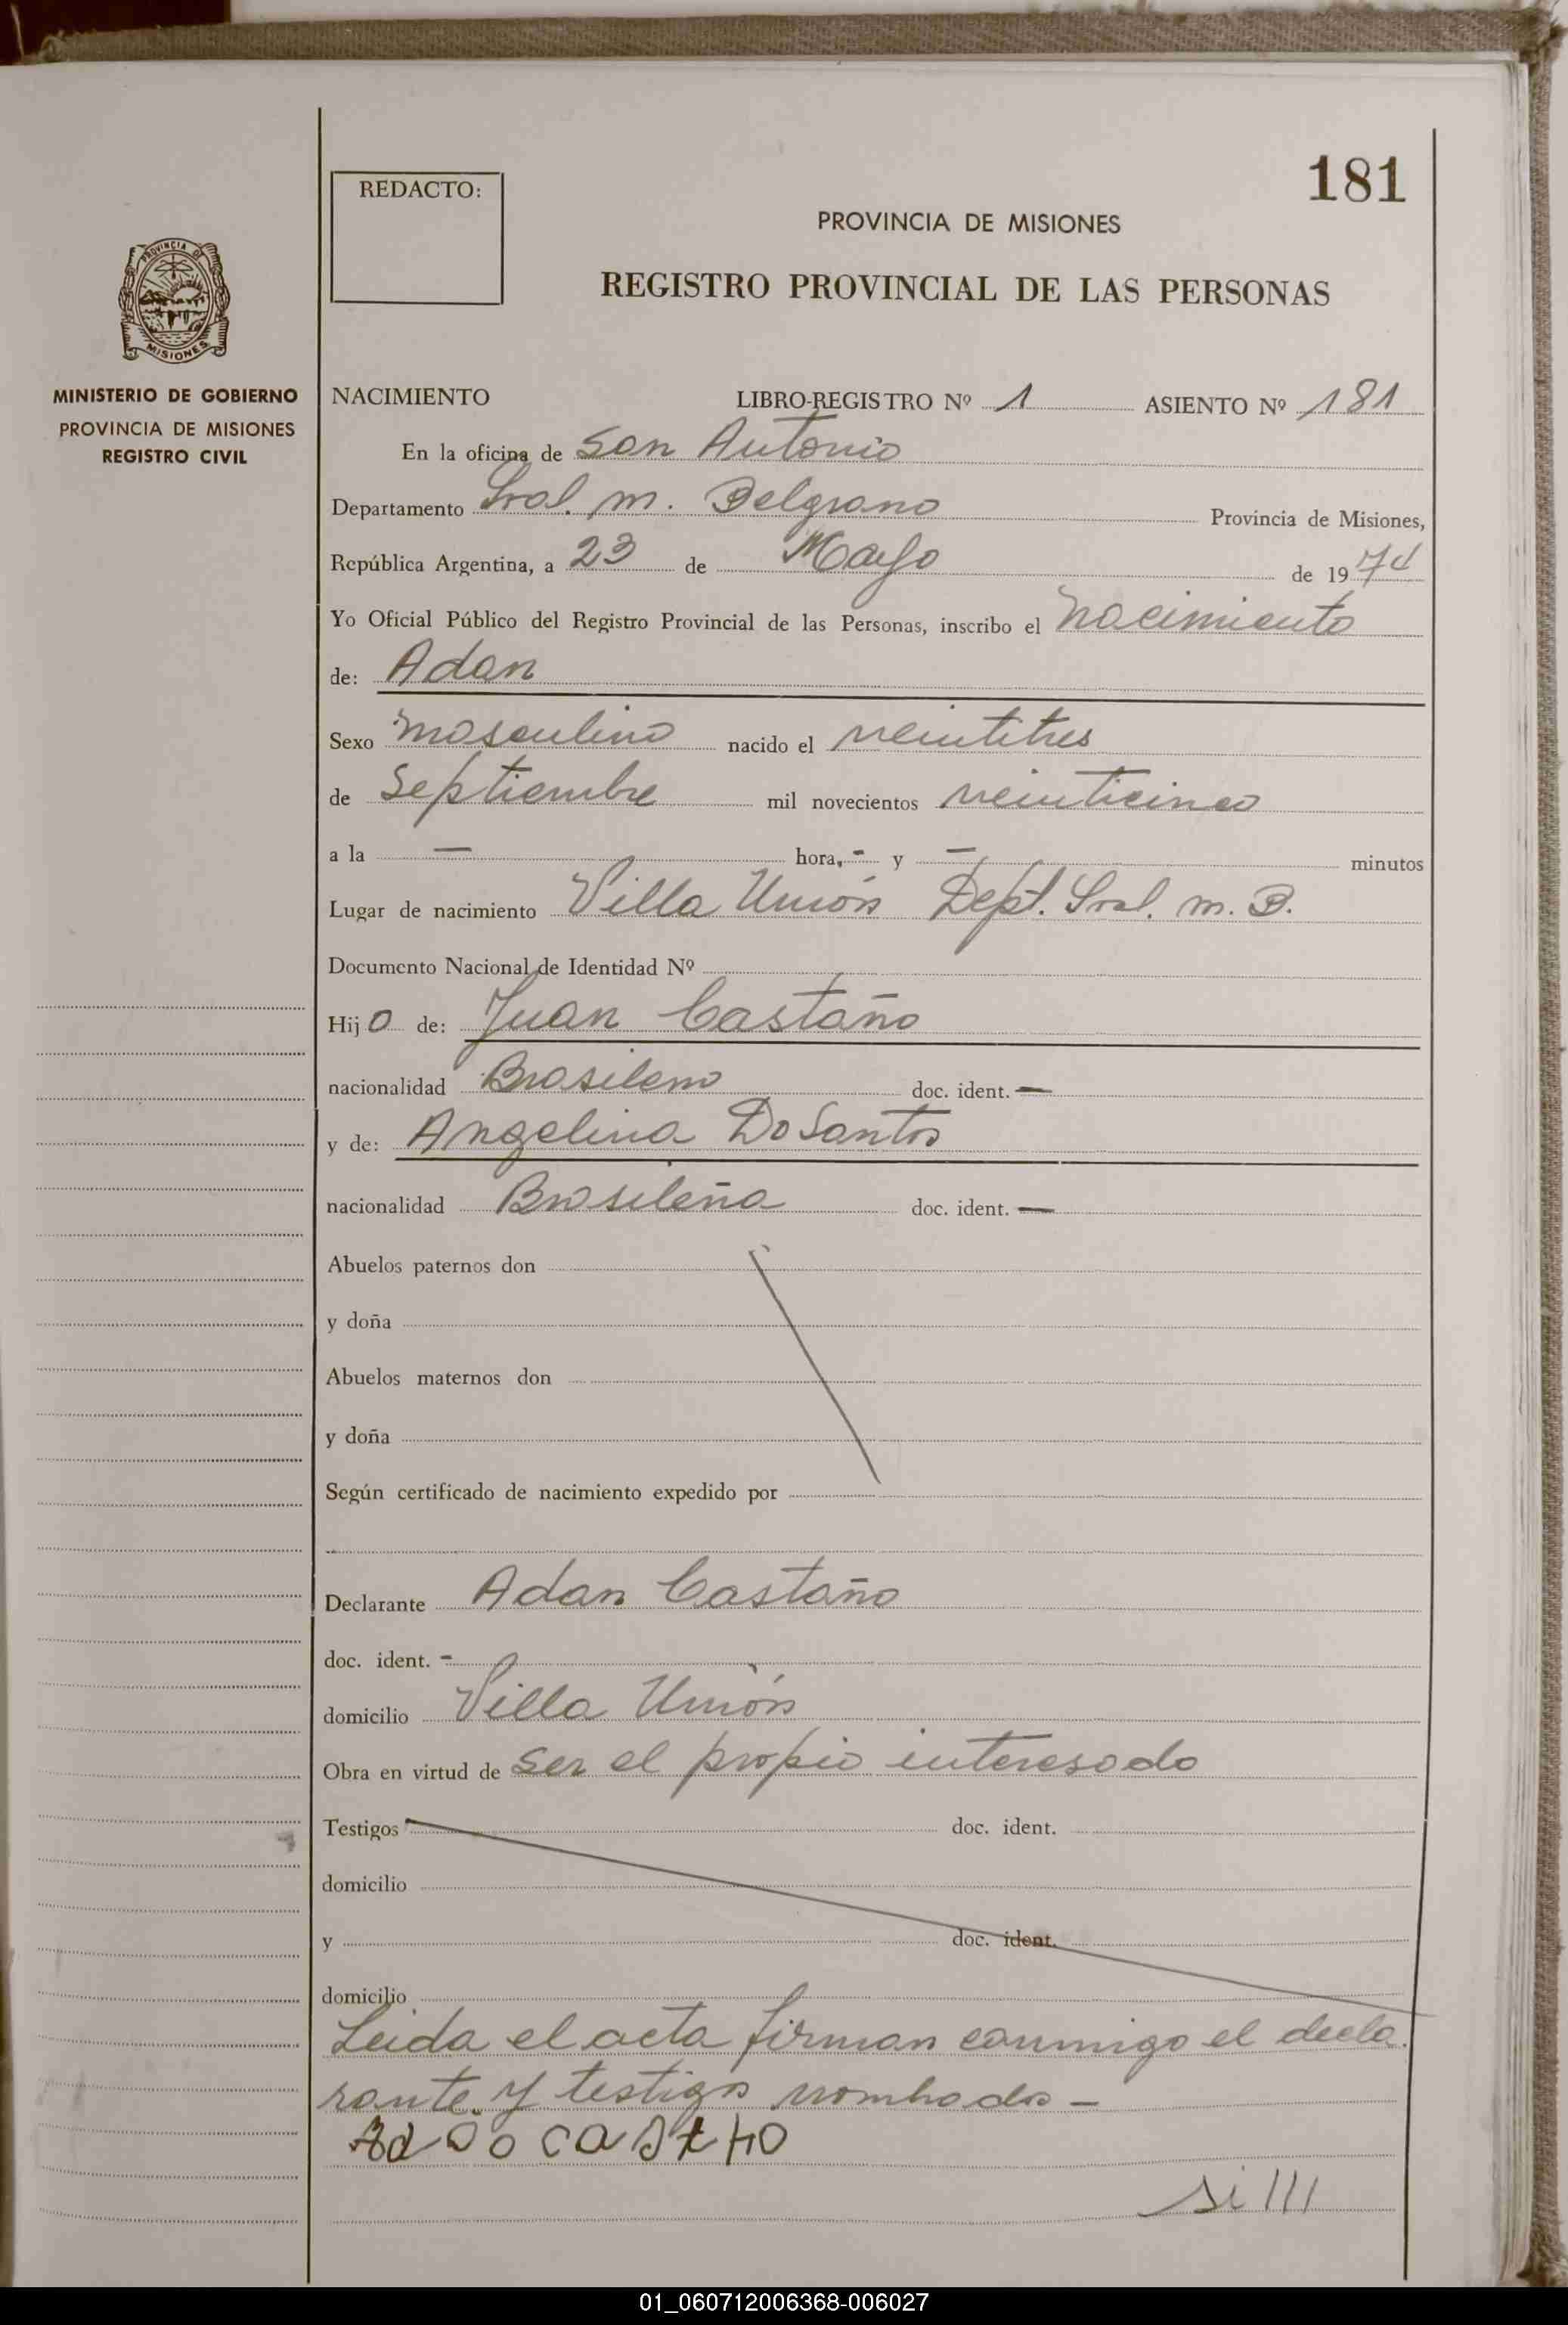 181
REDACTO:
PROVINCIA DE MISIONES
REGISTRO PROVINCIAL DE LAS PERSONAS
PROVINCIA DE
MISIONES
MINISTERIO DE GOBIERNO
PROVINCIA DE MISIONES
REGISTRO CIVIL
NACIMIENTO LIBRO-REGISTRO Nº 1 ASIENTO Nº 181
En la oficina de San Antonio
Departamento Gral. M. Belgrano Provincia de Misiones,
República Argentina, a 23 de Mayo de 1974
Yo Oficial Público del Registro Provincial de las Personas, inscribo el nacimiento
de: Adan
Sexo masculino nacido el veintitres
de Septiembre mil novecientos veinticinco
a la — hora, - y — minutos
Lugar de nacimiento Villa Unión Dept. Gral. M. B.
Documento Nacional de Identidad Nº
Hijo de: Juan Castaño
nacionalidad Brasileno doc. ident. —
y de: Angelina Do Santos
nacionalidad Brasileña doc. ident. —
Abuelos paternos don
y doña
Abuelos maternos don
y doña
Según certificado de nacimiento expedido por
Declarante Adan Castaño
doc. ident. -
domicilio Villa Unión
Obra en virtud de ser el propio interesado
Testigos doc. ident.
domicilio
y doc. ident.
domicilio
Leida el acta firman conmigo el decla
rante. y testigos nombrados —
si///
01_060712006368-006027